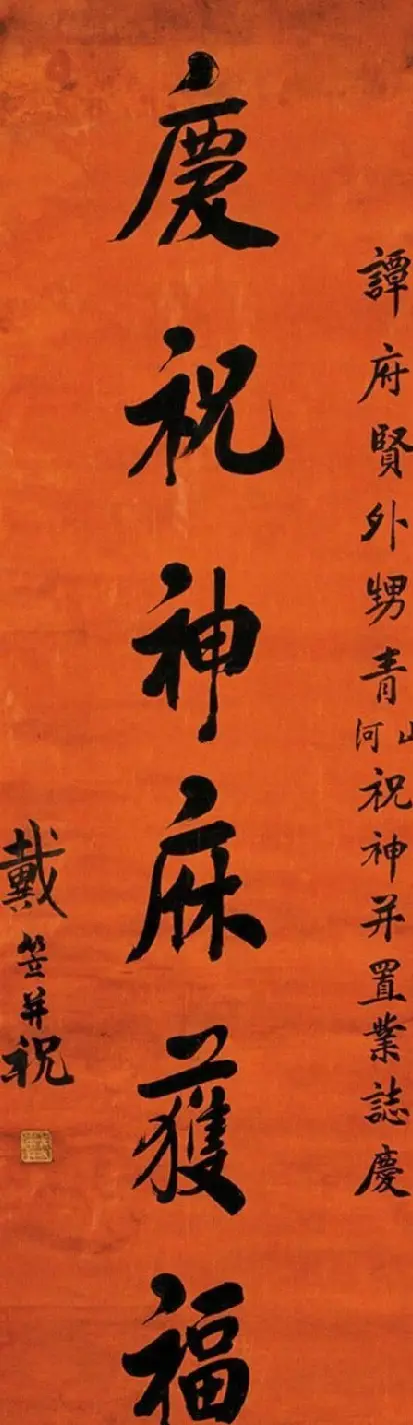 譚府賢外甥青山河祝神并置業誌慶
慶祝神庥獲福
戴笠并祝